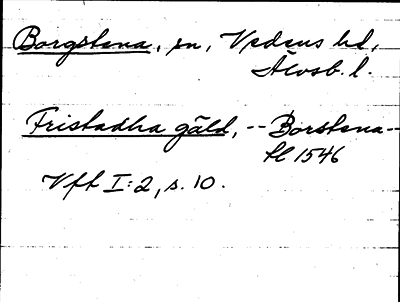 Borgstena, sn, Vedens hd,
Älvsb. l.
Fristadha gäld, -- Borstena --
fl 1546
Vft I:2, s. 10.